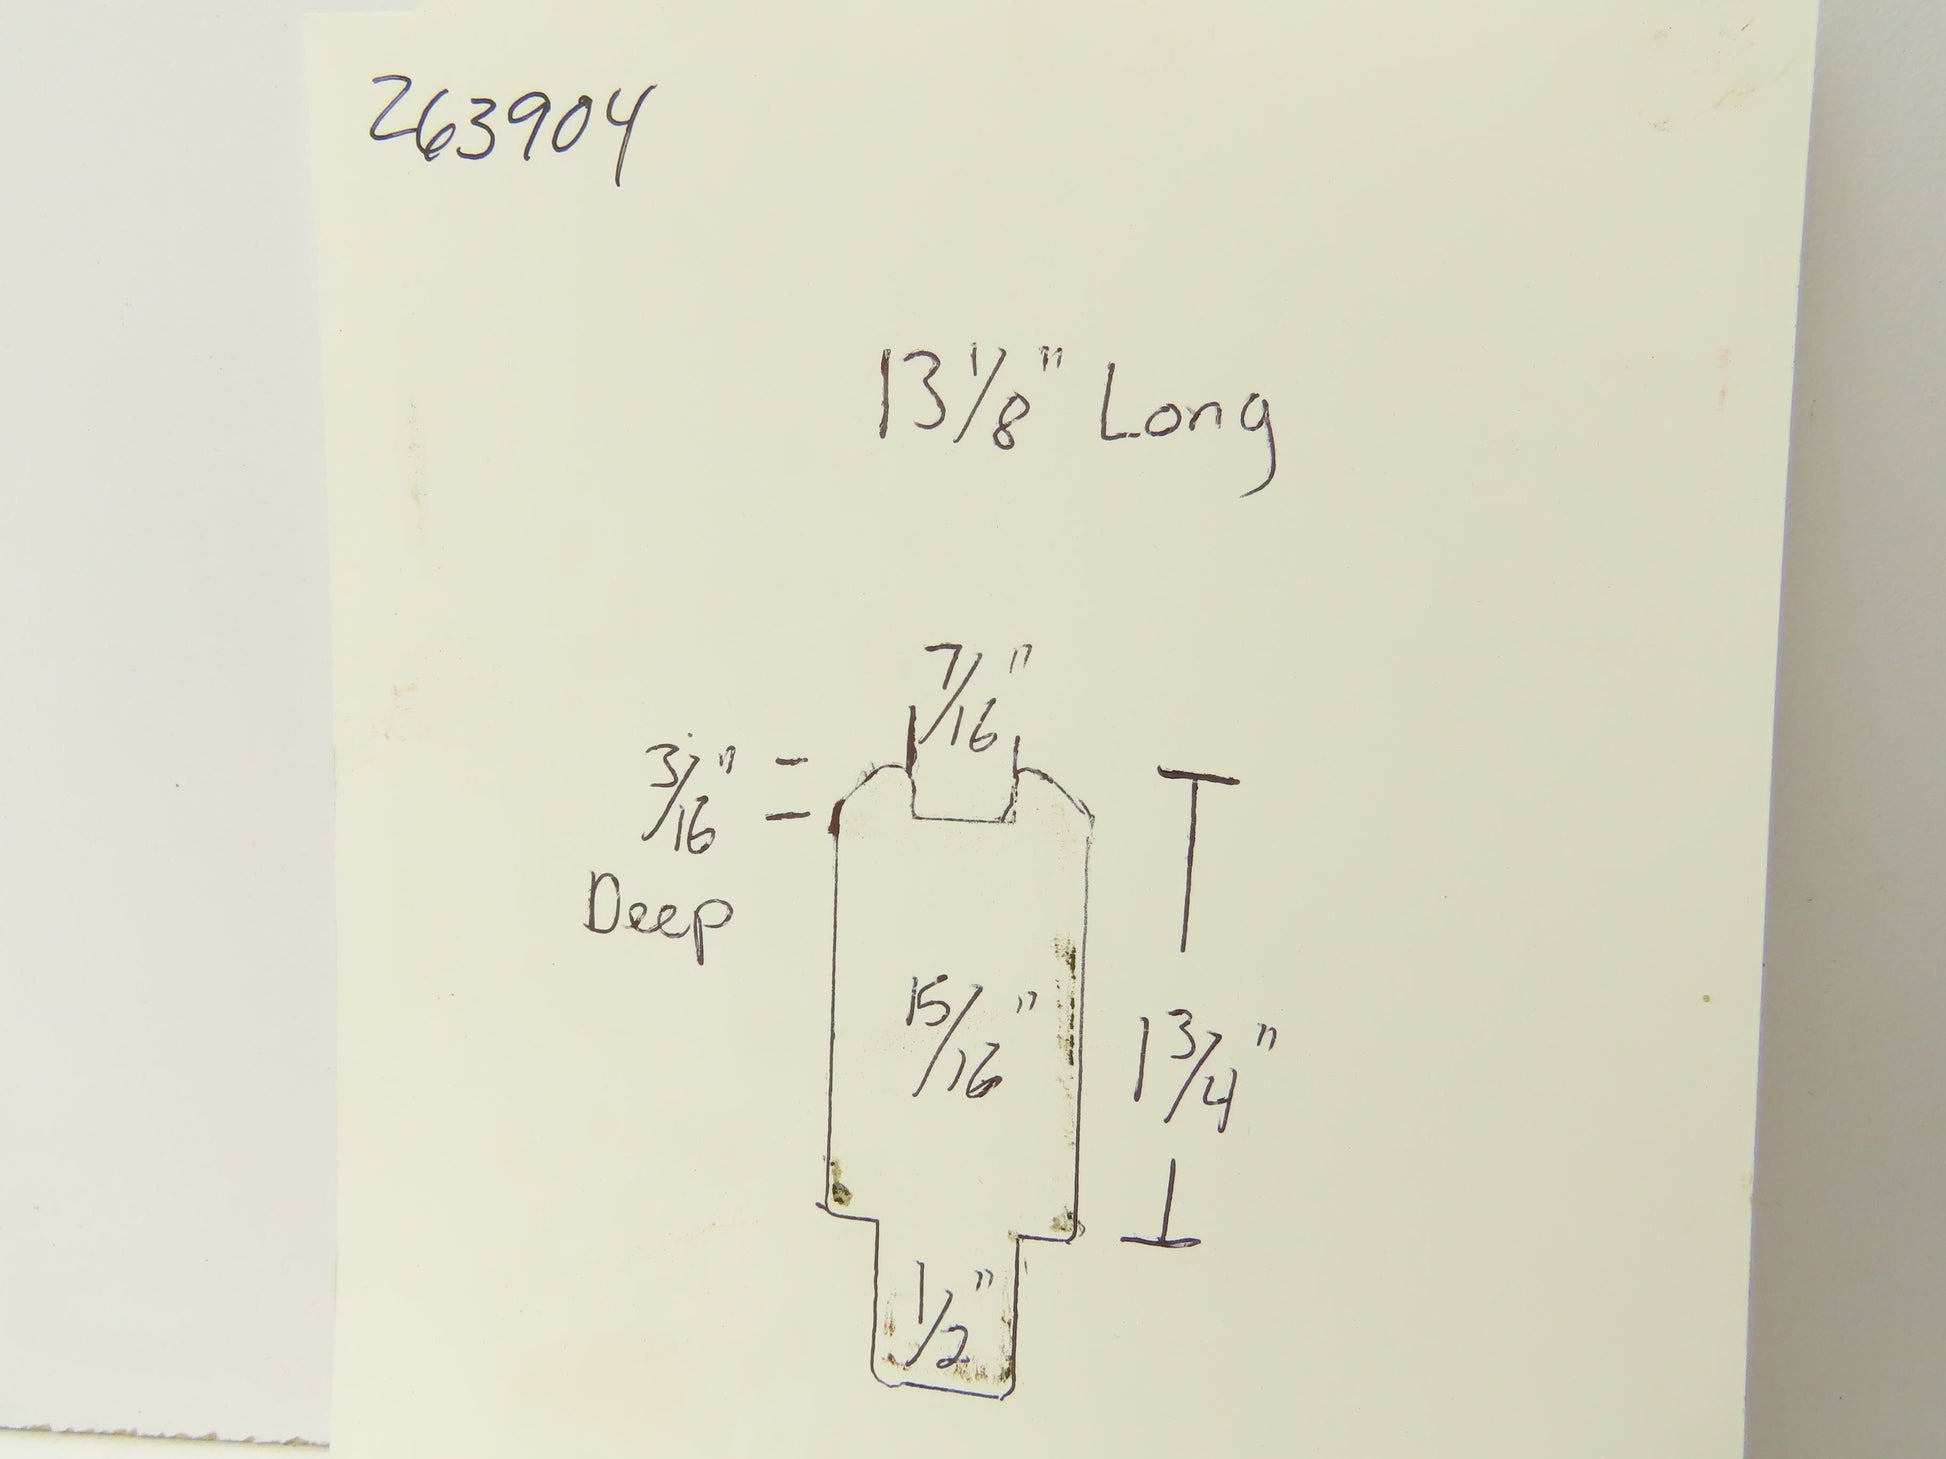 263904
13 1/8" Long
7/16"
3/16"
Deep
15/16"
1 3/4"
1/2"